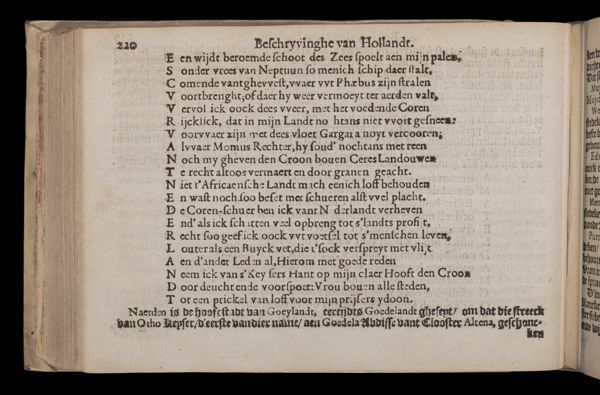 220 Beschryvinghe van Hollandt.
E en wijdt beroemde schoot des Zees spoelt aen mijn palen,
S onder vrees van Neptuun so menich schip daer stalt,
C omende vant ghevvest, vvaer vvt Phæbus zijn stralen
V oortbrenght, of daer hy weer vermoeyt ter aerden valt,
V ervol ick oock dees vveer, met het voedende Coren
R ijcklick, dat in mijn Landt no htans niet vvort gesneen:
V oorvvaer zijn met dees vloet Gargara noyt vercooren,
A lvvaer Momus Rechter, hy soud' nochtans met reen
N och my gheven den Croon boven Ceres Landouwen
T e recht altoos vermaert en door granen geacht.
N iet t'Africaensche Landt mach eenich loff behouden
E n wast noch soo beset met schueren alst vvel placht.
D e Coren-schuer ben ick vant N derlandt verheven
E nd' als ick sch itten veel opbreng tot s'landts profijt,
R echt soo geef ick oock vvt voetsel tot s'menschen leven,
L outer als een Buyck vet, die t'sock verspreyt met vlijt
A en d'ander Leden al, Hierom met goede reden
N eem ick van s'Keysers Hant op mijn claer Hooft den Croon
D oor deucht ende voorspoet: Vrou boven alle steden,
T ot een prickel van loff voor mijn prijsers ydoon.
Naerden is de hooftstadt van Goeylandt, eertijdts Goedelandt ghesept/ om dat die streeck
van Otho Keyser/ d'eerste van dier name/ aen Goedela Abdisse vant Clooster Altena, geschonc-
ken